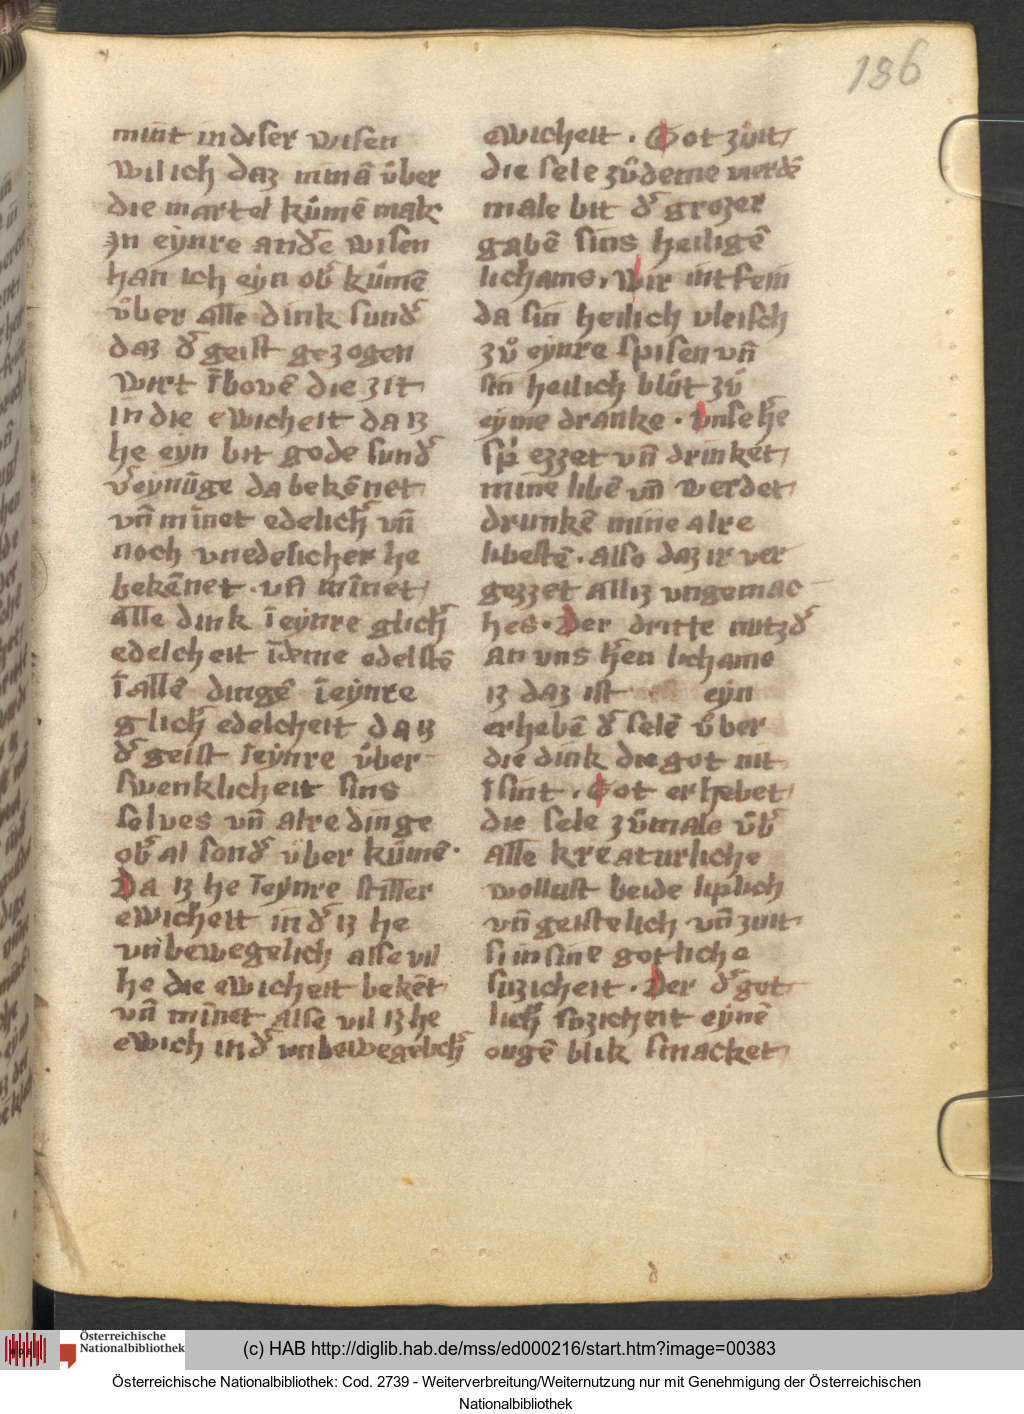 186
mint in diser wisen
wil ich daz niman̄ uͦber
die martel kuͦmē mak
Jn eynre and̓e wisen
han ich eyn ob̓ kuͦmē
uͦber alle dink sund̓
daz d̓ geist gezogen
wirt ī bovē die zit
in die ewicheit da iz
he eyn bit gode sund̓
v̓eynūge da bekēnet
vn̄ mīnet edelich̓ vn̄
noch vnedelicher he
bekēnet · vn̄ mīnet
alle dink ī eynre glich̓
edelcheit ī deme edelstē
ī allē dingē ī eynre
glich̓ edelcheit daz
d̓ geist ī eynre uͦber
swenklicheit sins
selves vn̄ alre dinge
ob̓ al sond̓ uͦber kuͦmē ·
Da iz he ī eynre stiller
ewicheit in d̓ iz he
vnbewegelich alse vil
he die ewicheit bekēt
vn̄ mīnet alse vil iz he
ewich in d̓ vnbewegelich̓
ewicheit · Got zuͦit
die sele zuͦ deme vierdē
male bit d̓ grozer
gabē sins heiligē
lichams · Wir intfein
da sin heilich vleisch
zuͦ eynre spisen vn̄
sin heilich bluͦt zuͦ
eyme dranke · Vnse h̓e
sp̓ ezzet vn̄ drinket
mine libē vn̄ werdet
drunkē mine alre
libestē · also daz ir ver
gezzet alliz vngemac
hes · Der dritte nutz d̓
an vns h̓en lichame
iz daz ist eyn
erhebē d̓ selē uͦber
die dink die got nit
ī sint · Got erhebet
die sele zuͦ male uͦb̓
alle kreaturliche
wollust beide liplich
vn̄ geistelich vn̄ zuit
si in sine gotliche
suzicheit · Der d̓ got
lich̓ sozicheit eynē
ougē blik smacket
(c) HAB http://diglib.hab.de/mss/ed000216/start.htm?image=00383
Österreichische Nationalbibliothek
Österreichische Nationalbibliothek: Cod. 2739 - Weiterverbreitung/Weiternutzung nur mit Genehmigung der Österreichischen
Nationalbibliothek